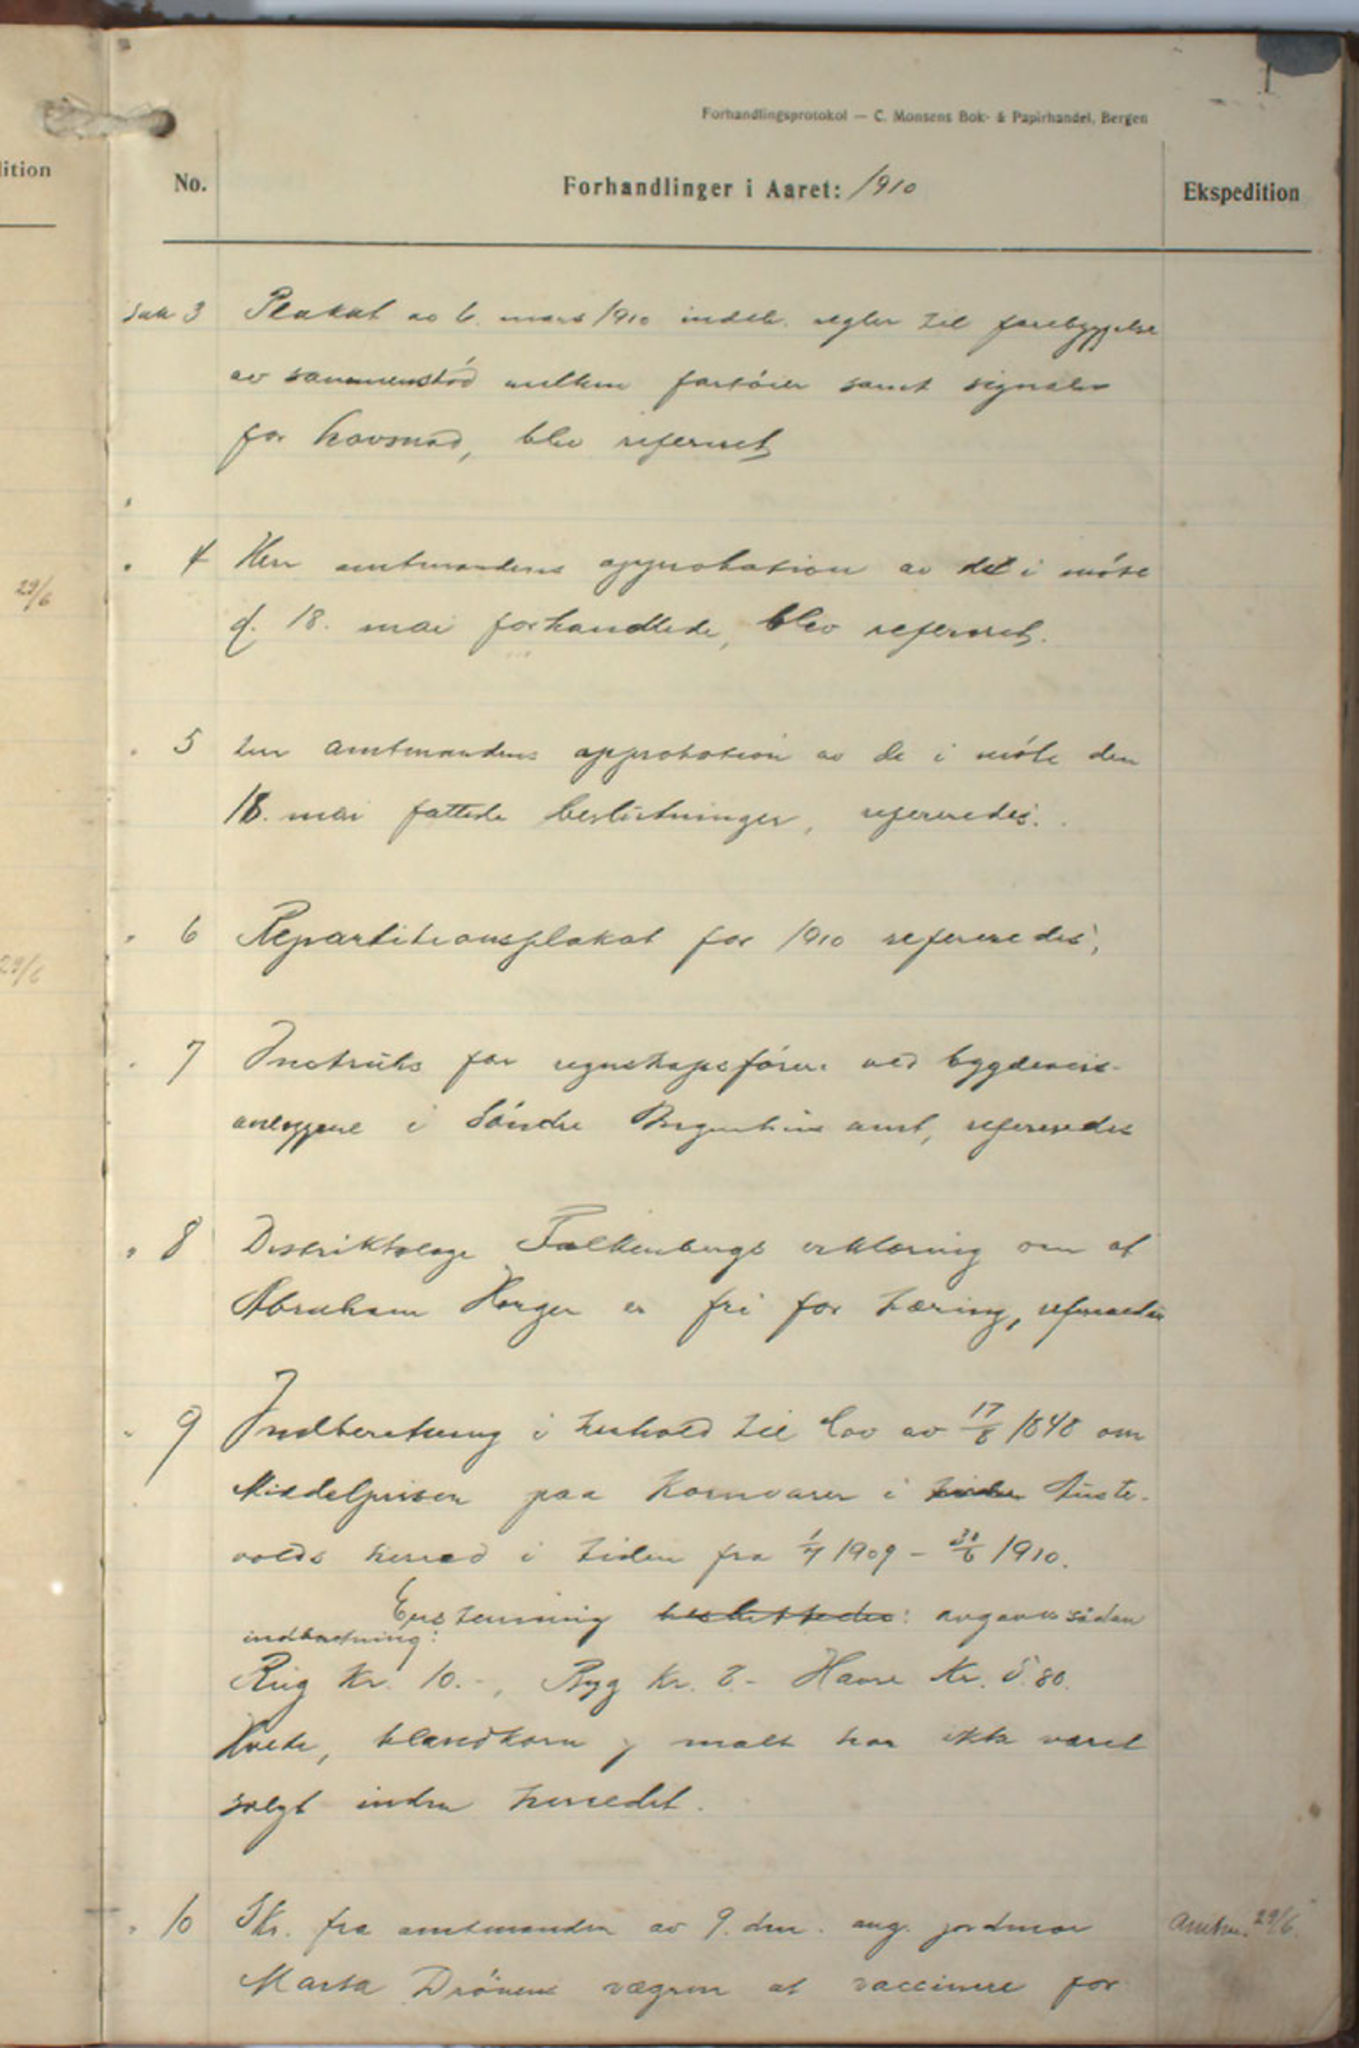 Forhandlingsprotokol — C. Monsens Bok- & Papirhandel, Bergen
ition
No.
Forhandlinger i Aaret: 1910
Ekspedition
Sak 3 Plakat av 6. mars 1910 indeh. regler til forebyggelse
av sammenstød mellem fartøier samt signaler
for havsnød, blev referert
" 4 Herr amtmandens approbation av det i møte
d. 18. mai forhandlede, blev referert.
29/6
" 5 Herr amtmandens approbation av de i møte den
18. mai fattede beslutninger, referedes.
" 6 Repartitionsplakat for 1910 refereredes,
29/6
" 7 Instruks for regnskapsfører ved bygdeveis-
anlæggene i Søndre Bergenhus amt, refereredes
" 8 Distriktslæge Falkenbergs erklæring om at
Abraham Horgen er fri for tæring, refereredes
" 9 Indberetning i henhold til lov av 17/8 1848 om
Middelprisen paa Kornvarer i Auste-
volds herred i tiden fra 1/7 1909 - 30/6 1910.
Enstemmig besluttedes: avgaves sådan
indberetning:
Rug Kr. 10.-, Byg Kr. 8.- Havre Kr. 5.80.
Hvete, blandkorn og malt har ikke været
solgt inden herredet.
" 10 Skr. fra amtmanden av 9. dm. ang. jordmor
Amtm. 29/6.
Marta Drönens vægren at vaccinere for